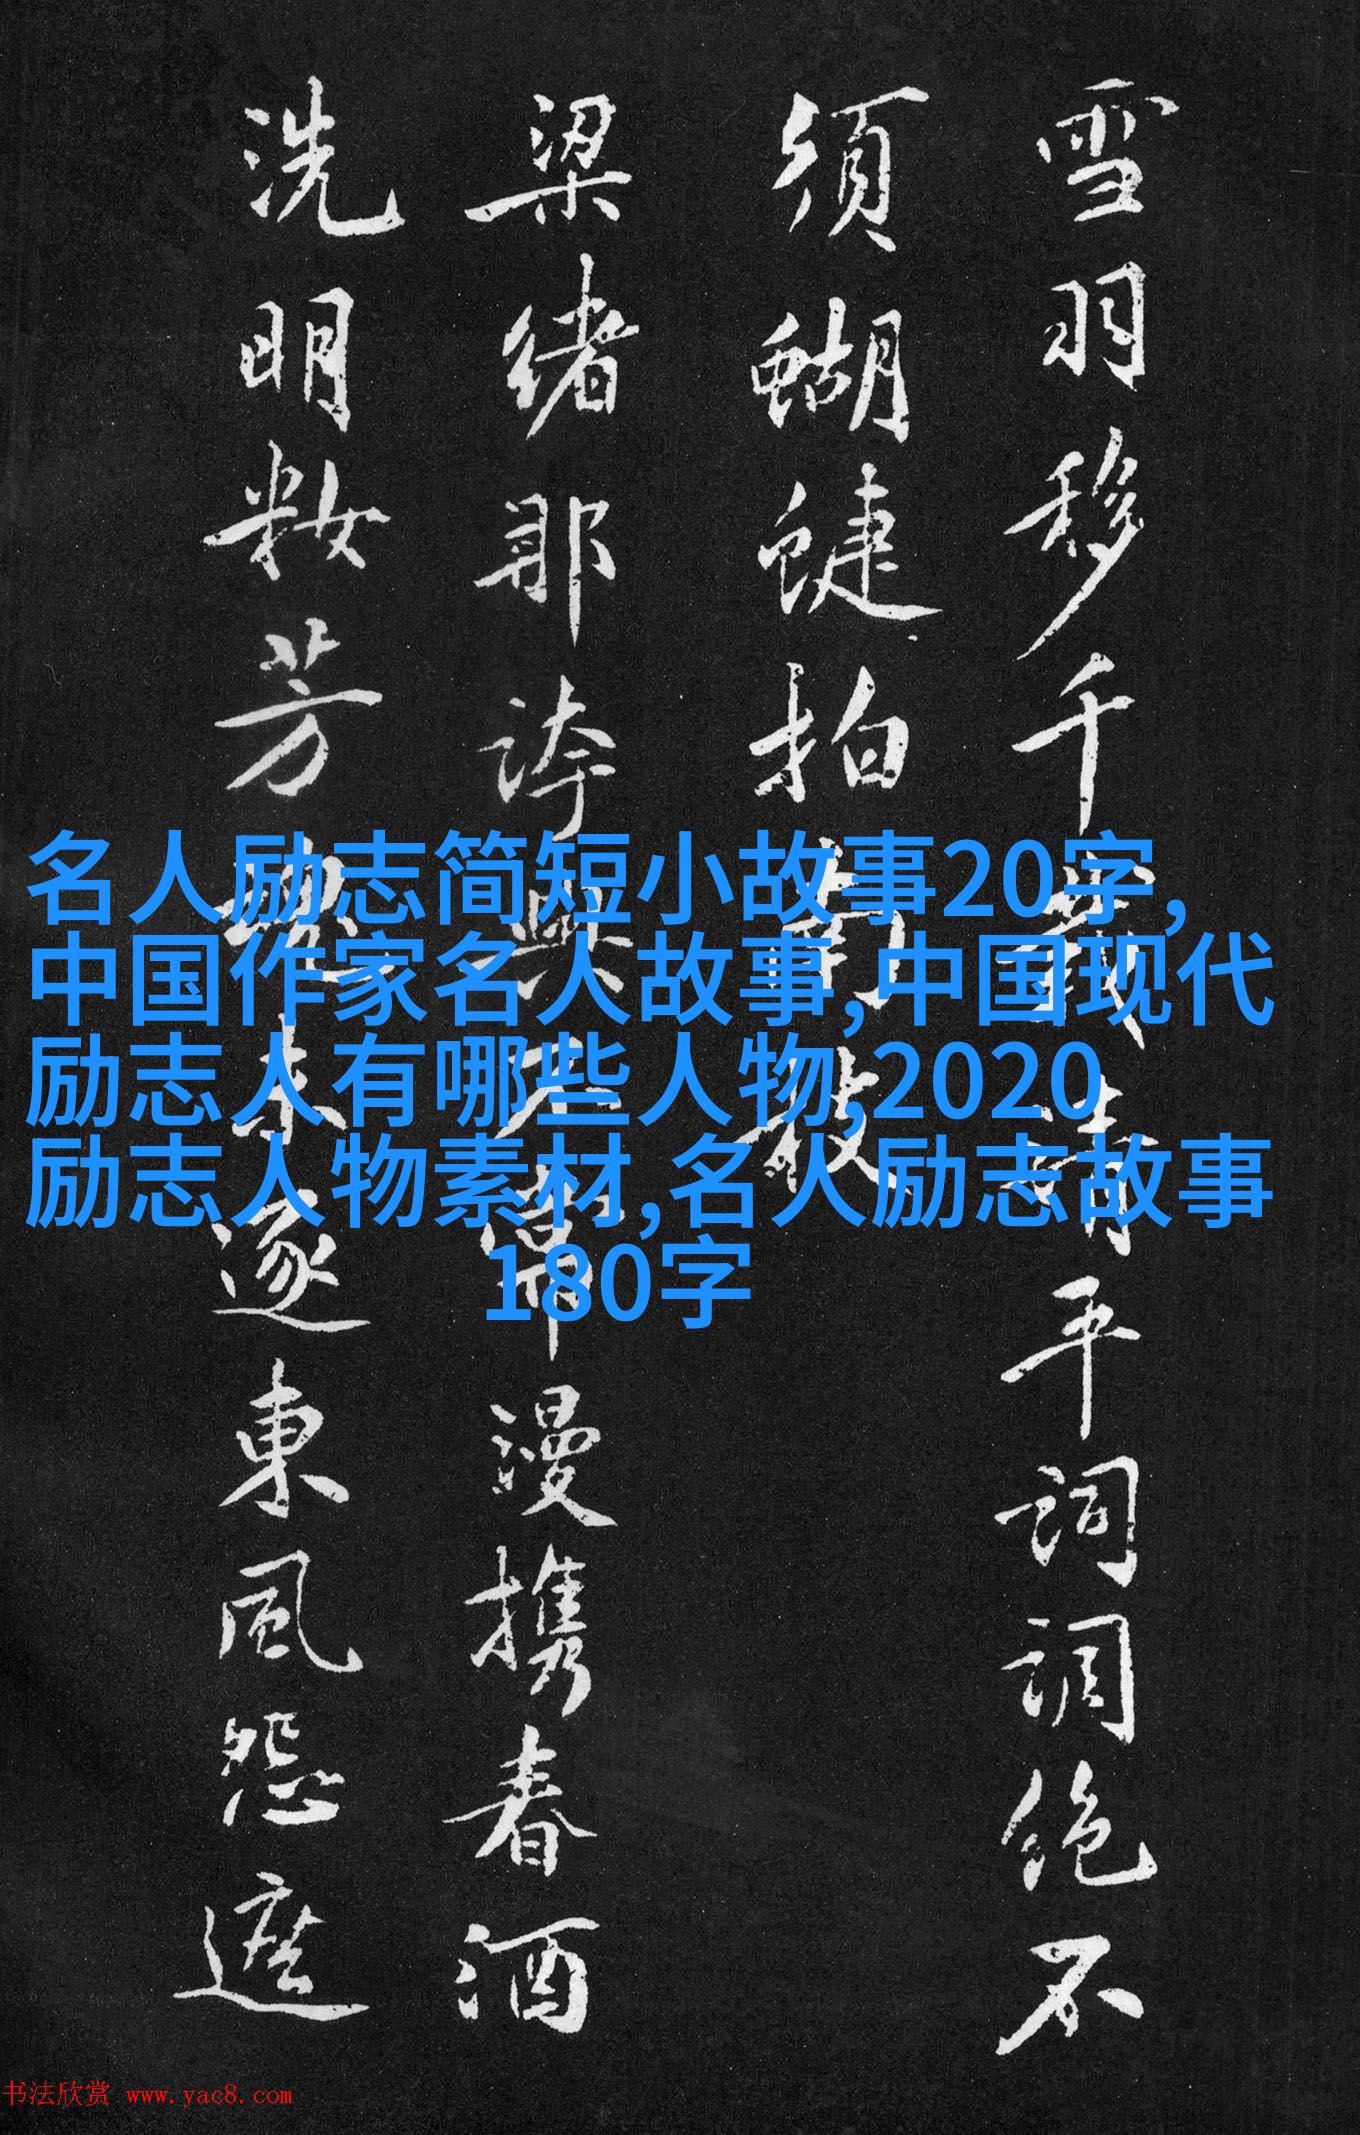 雪羽移千載清平詞調絕不
須蝴蝶拍
梁緒那誇興不漫携春酒
洗明粧芳未逐東風怨遮
名人励志简短小故事20字,
中国作家名人故事,中国现代
励志人有哪些人物,2020
励志人物素材,名人励志故事
180字
书法欣赏 www.yac8.com